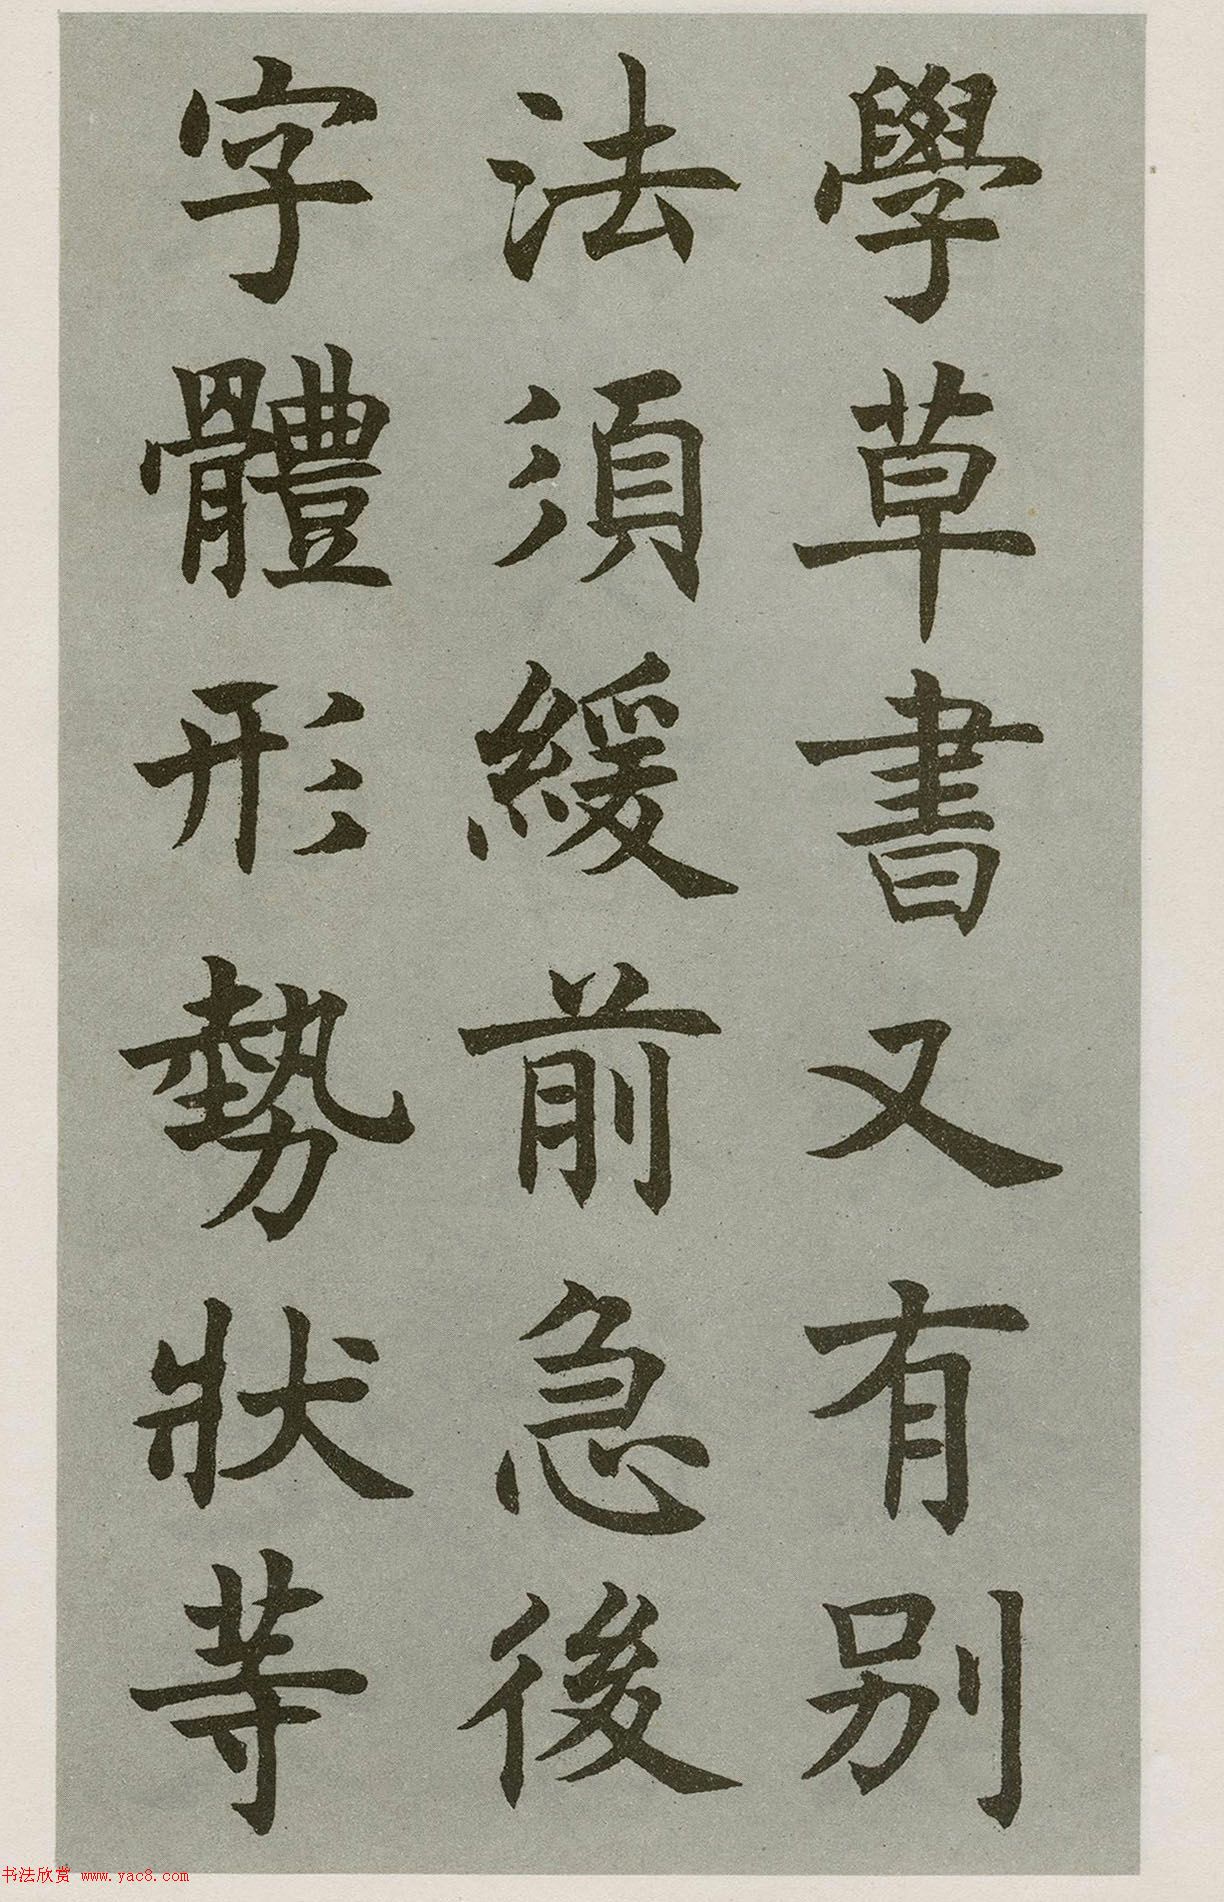 學草書又有别
法須緩前急後
字體形勢狀等
书法欣赏 www.yac8.com